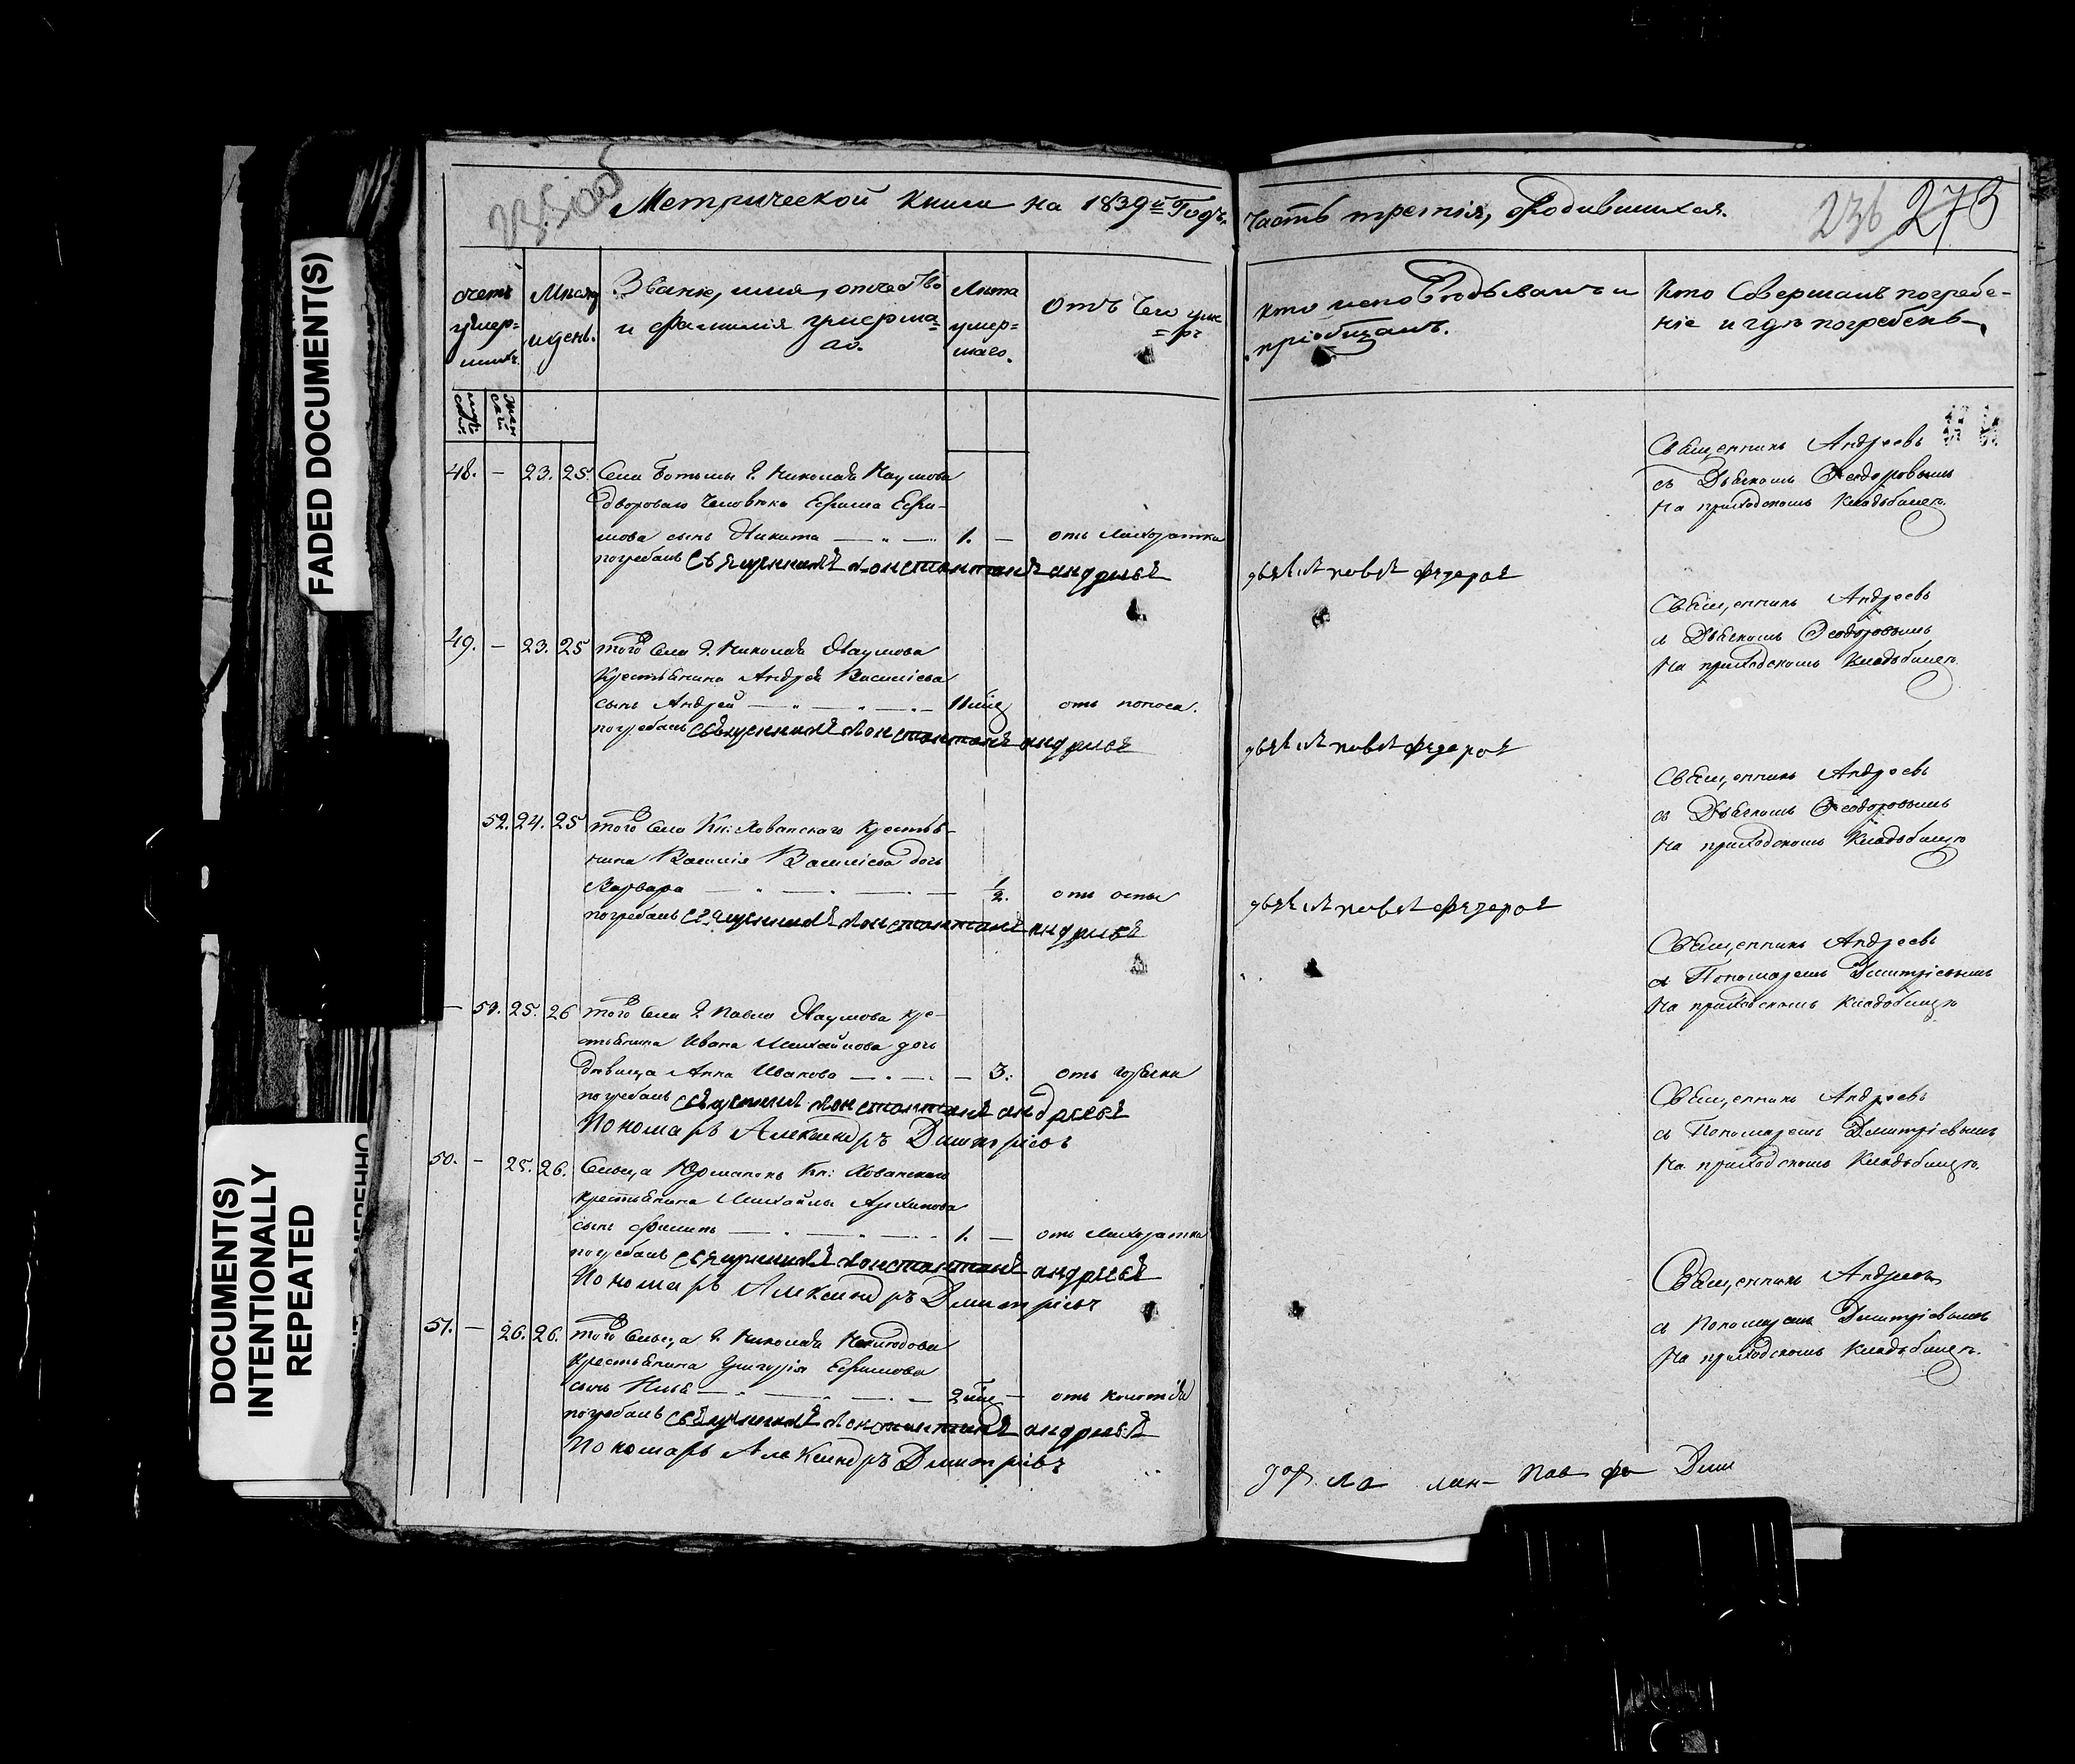 FADED DOCUMENT(S)
DOCUMENT(S)
INTENTIONALLY
REPEATED
235 об
Метрической книги на 1839й Годъ.
часть третія, 
236 273
счетъ умер=
шихъ
Мѣсяцъ
и день.
Званіе, имя, отчество
и фамилія умерша=
го.
Лѣта
умер=
шаго.
Отъ чего уме
=ръ
кто исповѣдывалъ и
пріобщалъ.
Кто Совершалъ погребе-
ніе и гдѣ погребенъ
48. — 23. 25. Села Г. Николая Наумова
двороваго человѣка Ефима Ефи-
мова сынъ Никита 1. — отъ лихоратки
погребалъ священникъ константинъ андреевъ
дьяконъ
Священникъ Андреевъ
съ Дьякономъ Ѳеодоровымъ
На приходскомъ Кладбищѣ.
49. — 23. 25 того Села Г. Николая Наумова
Крестьянина Андрея Василіева
сынъ Андрей 11 отъ поноса.
погребалъ священникъ константинъ андреевъ
дьяконъ
Священникъ Андреевъ
съ Дьякономъ Ѳеодоровымъ
На приходскомъ Кладбищѣ.
52. 24. 25 того Села Кн: Хованскаго Крестья-
нина Василія Василіева дочь
Варвара 1/2. отъ оспы
погребалъ священникъ константинъ андреевъ
дьяконъ
Священникъ Андреевъ
съ Дьякономъ Ѳеодоровымъ
На приходскомъ Кладбищѣ
— 53. 25. 26 того Села Г. Павла Наумова кре-
стьянина Ивана Михайлова дочь
дѣвица Анна Иванова — 3. отъ горячки
погребалъ священникъ константинъ андреевъ
Пономарь Александръ Дмитріевъ
Священникъ Андреевъ
съ Пономаремъ Дмитріевымъ
На приходскомъ Кладбищѣ
50. — 25. 26. Сельца Кн: Хованскаго
крестьянина Михайлы Архипова
сынъ Филипъ 1. — отъ лихоратки
погребалъ священникъ константинъ андреевъ
Пономарь Александръ Дмитріевъ
Священникъ Андреевъ
съ Пономаремъ Дмитріевымъ
На приходскомъ Кладбищѣ.
51. — 26. 26. того Сельца Г. Николая Неклюдова
Крестьянина Григорія Ефимова
сынъ 2 — отъ
погребалъ священникъ константинъ андреевъ
Пономарь Александръ Дмитріевъ
Священникъ Андреевъ
съ Пономаремъ Дмитріевымъ
На приходскомъ Кладбищѣ.
Пав Дми